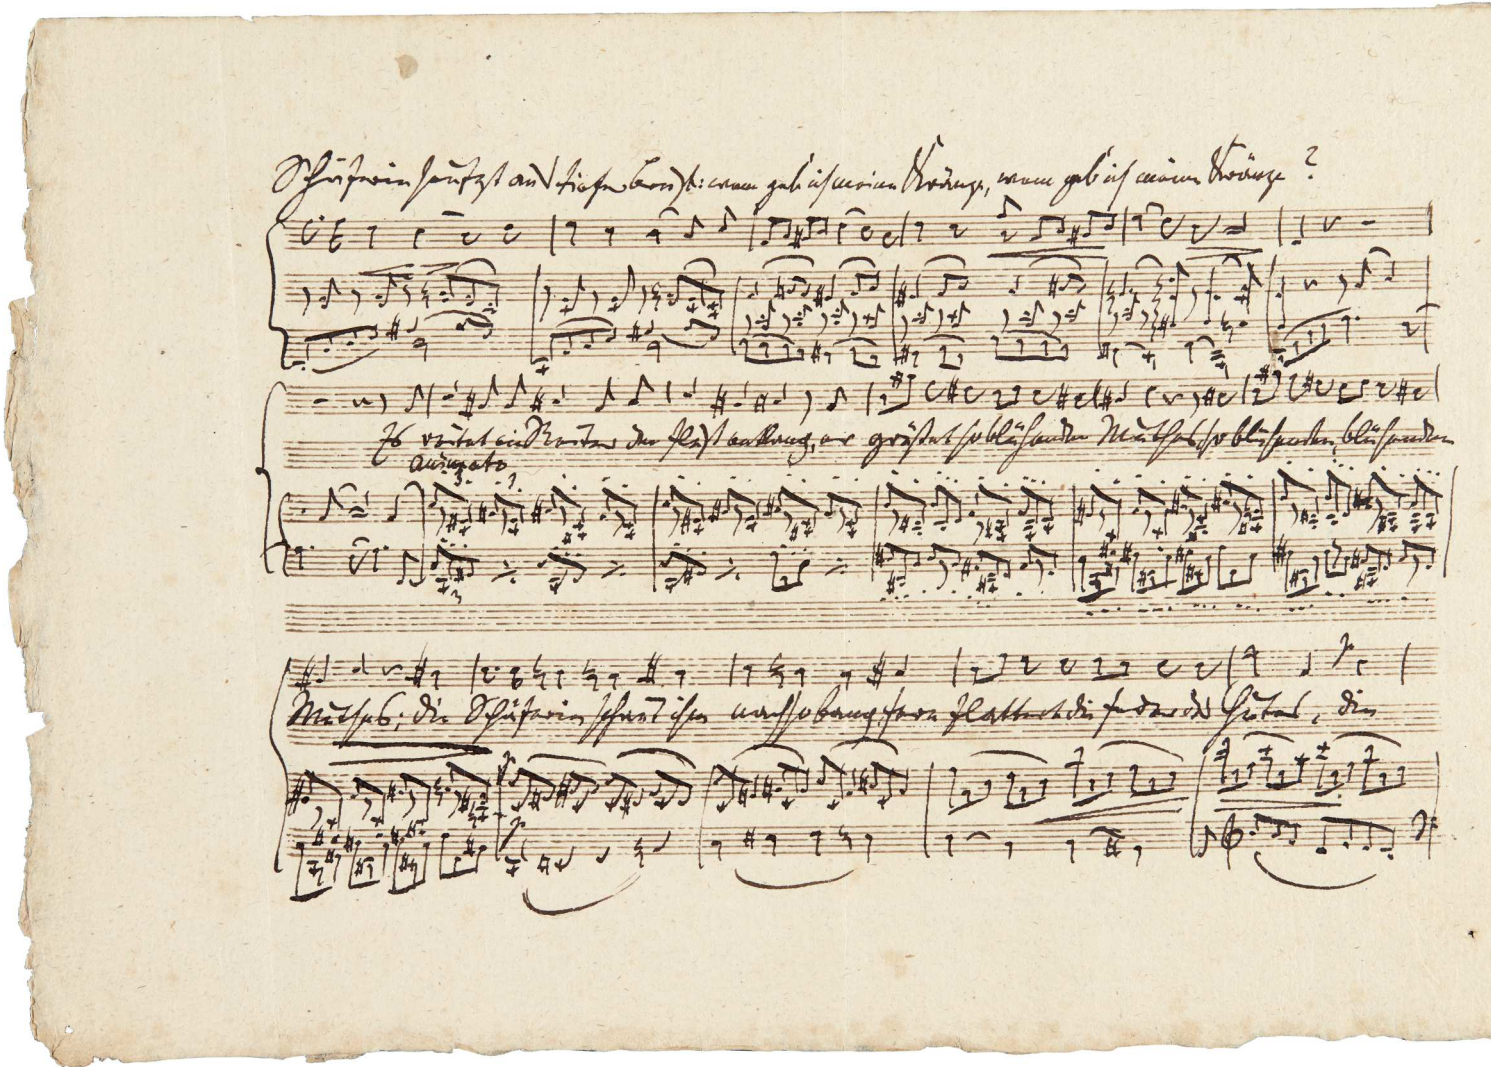 Schäferin seufzt aus tiefer Brust: wem geb' ich meine Kränze, wem geb' ich meine Kränze?
Es reitet ein Reiter den Fluß entlang, er grüßet so blühenden Muthes so blühenden, blühenden
animato
Muthes; die Schäferin schaut ihm nach so bang, fern flattert die Feder des Hutes, die